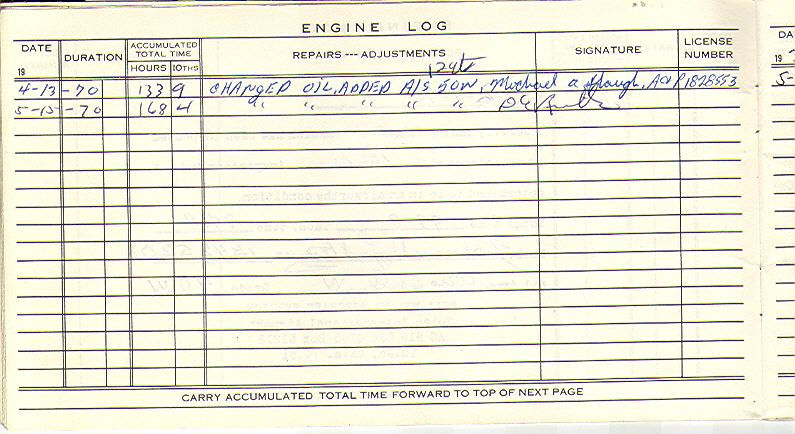 ENGINE LOG
DATE DURATION ACCUMULATED TOTAL TIME REPAIRS --- ADJUSTMENTS SIGNATURE LICENSE NUMBER
19 HOURS 10THS
12qts
4-13-70 133 9 CHANGED OIL, ADDED A/S 50W, Michael a A&P 1828553
5-15-70 168 4 " " " " "
CARRY ACCUMULATED TOTAL TIME FORWARD TO TOP OF NEXT PAGE
DA
19
5-